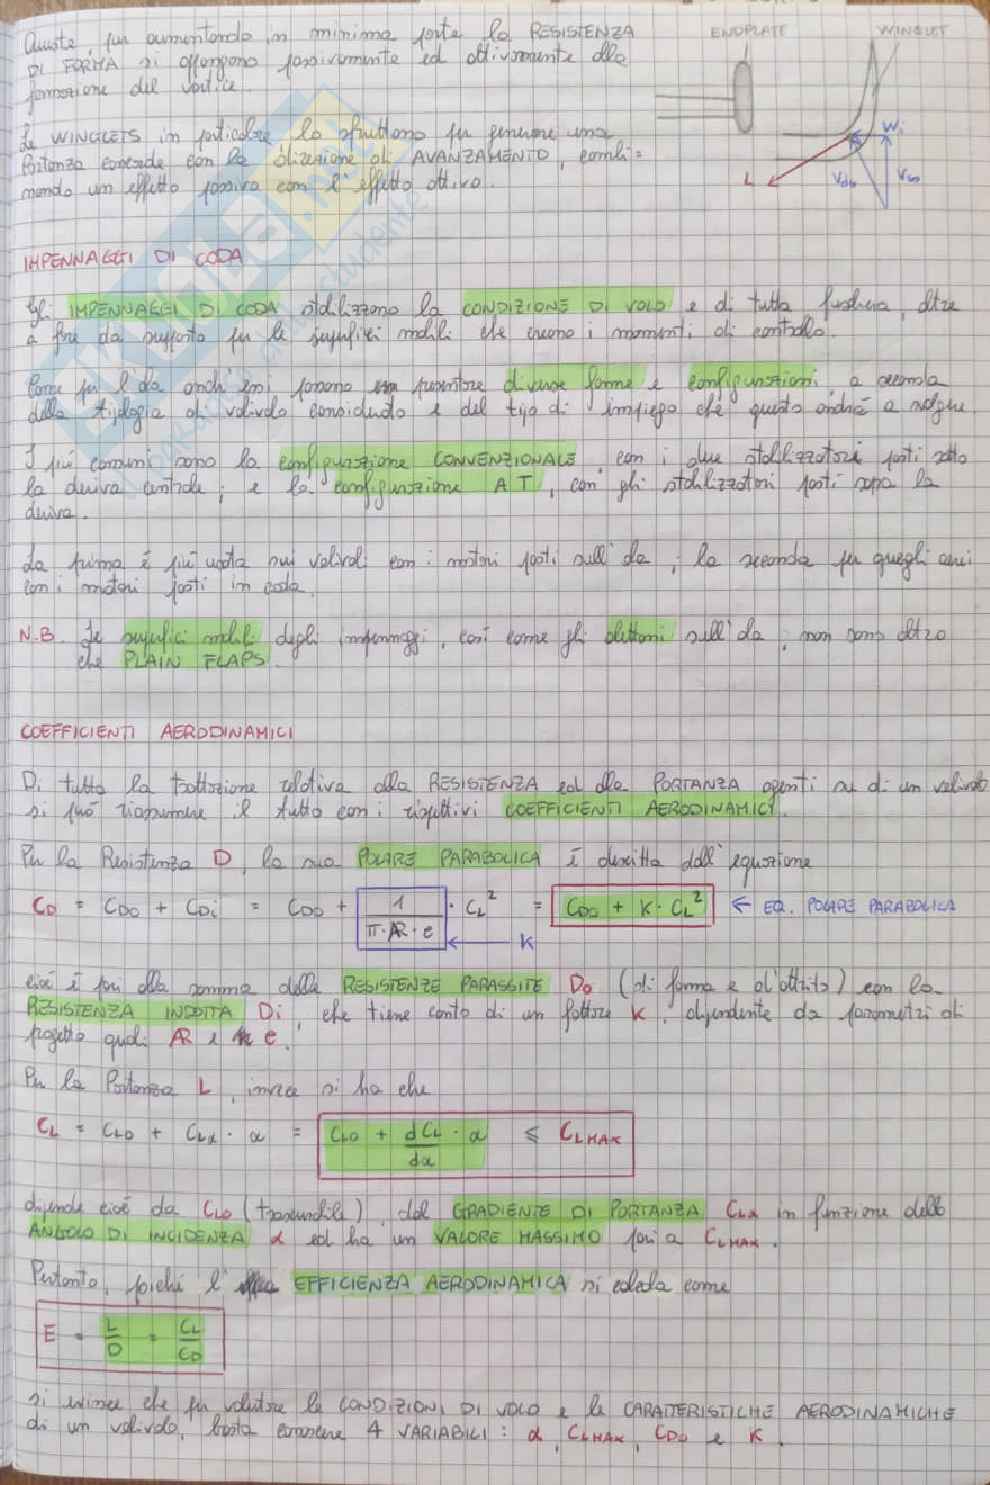 Queste, pur aumentando in minima parte la RESISTENZA
DI FORMA si oppongono passivamente ed attivamente alla
formazione del vortice.
Le WINGLETS in particolare lo sfruttano per generare una
Portanza concorde con la direzione di AVANZAMENTO, combi=
nando un effetto passivo con l'effetto attivo.
ENDPLATE
WINGLET
Wi
L
V∞
IMPENNAGGI DI CODA
Gli IMPENNAGGI DI CODA stabilizzano la CONDIZIONE DI VOLO e di tutta fusoliera, oltre
a fare da supporto per le superfici mobili che creano i momenti di controllo.
Come per l'ala anch'essi possono presentare diverse forme e configurazioni, a seconda
della tipologia di velivolo considerato e del tipo di impiego che questo andrà a svolgere
I più comuni sono la configurazione CONVENZIONALE, con i due stabilizzatori posti sotto
la deriva centrale; e la configurazione A T, con gli stabilizzatori posti sopra la
deriva.
La prima è più usata sui velivoli con i motori posti sull'ala; la seconda per quegli aerei
con i motori posti in coda.
N.B. Le superfici mobili degli impennaggi, così come gli alettoni sull'ala, non sono altro
che PLAIN FLAPS.
COEFFICIENTI AERODINAMICI
Di tutta la trattazione relativa alla RESISTENZA ed alla PORTANZA agenti su di un velivolo
si può riassumere il tutto con i rispettivi COEFFICIENTI AERODINAMICI.
Per la Resistenza D, la sua POLARE PARABOLICA è descritta dall'equazione
CD = CD0 + CDi = CD0 + 1/(π·AR·e) · CL² = CD0 + K·CL² ← EQ. POLARE PARABOLICA
← K
cioè è pari alla somma delle RESISTENZE PARASSITE D0 (di forma e d'attrito) con la
RESISTENZA INDOTTA Di, che tiene conto di un fattore K, dipendente da parametri di
progetto quali AR e e.
Per la Portanza L, invece si ha che
CL = CL0 + CLα · α = CL0 + dCL/dα · α ≤ CLMAX
dipende cioè da CL0 (trascurabile), dal GRADIENTE DI PORTANZA CLα in funzione dello
ANGOLO DI INCIDENZA α ed ha un VALORE MASSIMO pari a CLMAX.
Pertanto, poiché l' EFFICIENZA AERODINAMICA si calcola come
E = L/D = CL/CD
si evince che per valutare le CONDIZIONI DI VOLO e le CARATTERISTICHE AERODINAMICHE
di un velivolo, basta conoscere 4 VARIABILI: α, CLMAX, CD0 e K.